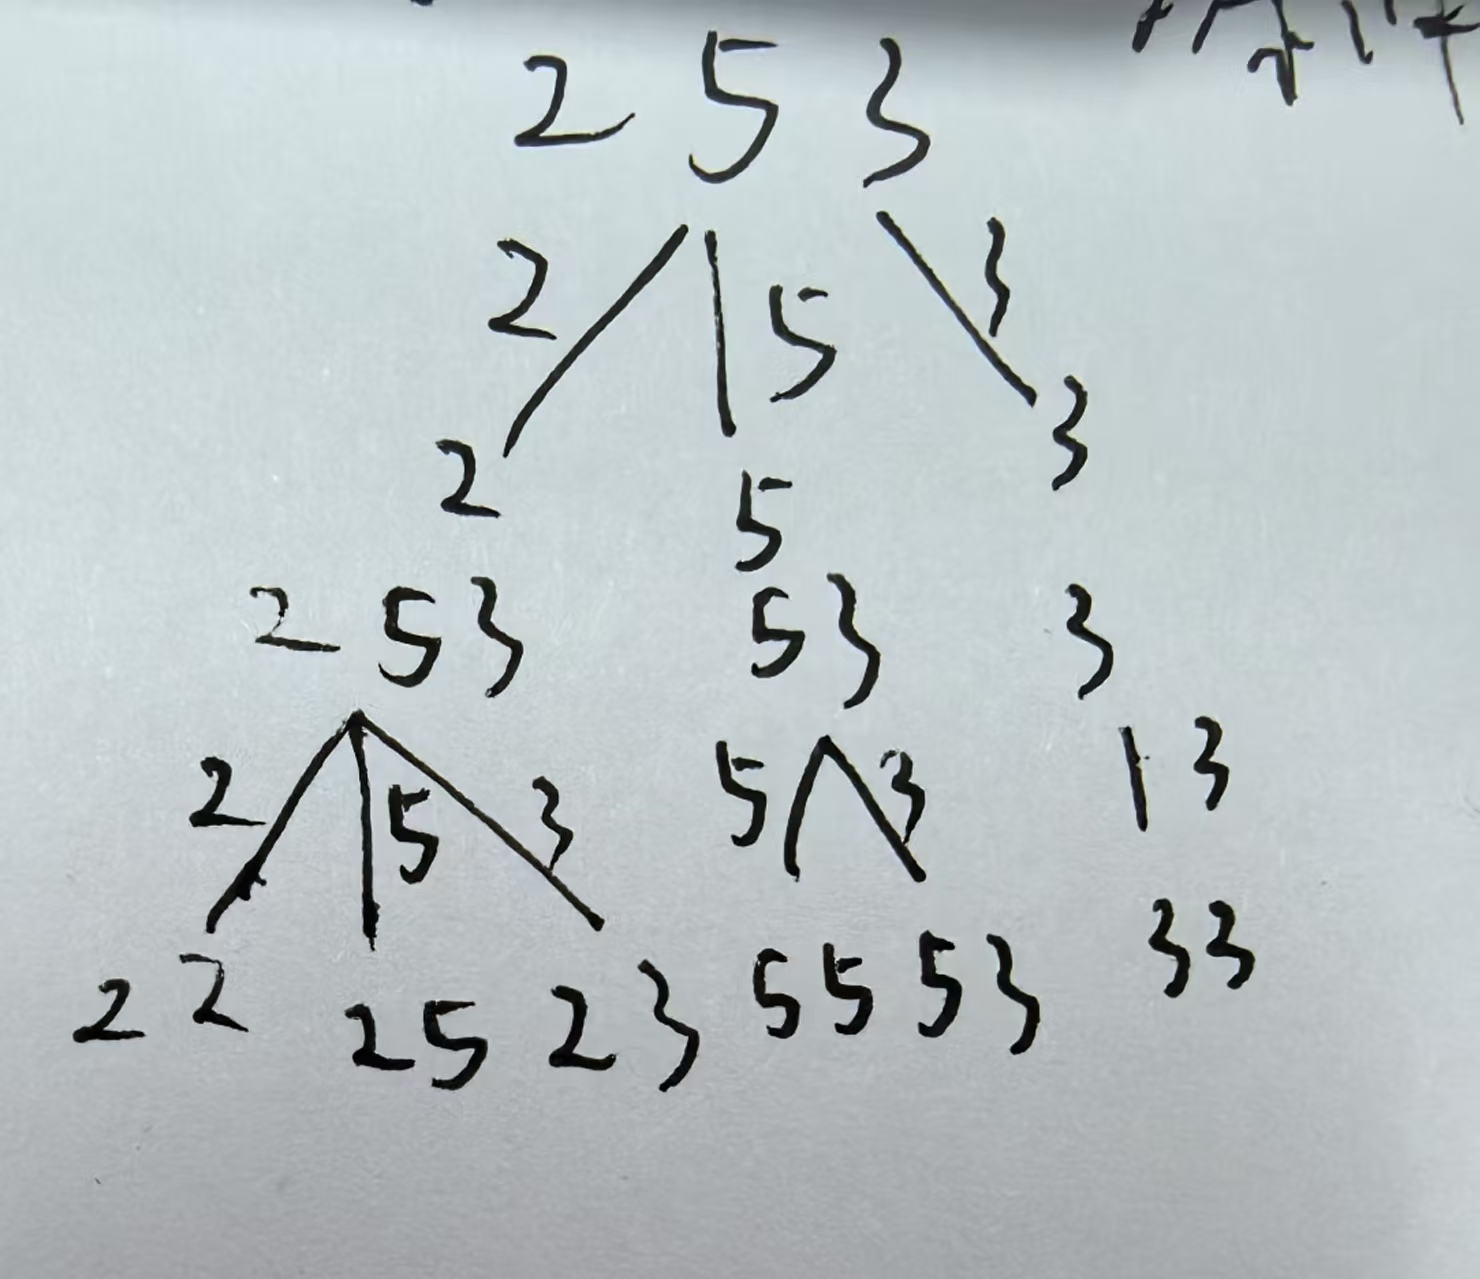 2 5 3
2 5 3
2 5 3
2 5 3 5 3 3
2 5 3 5 3 3
2 2 2 5 2 3 5 5 5 3 3 3